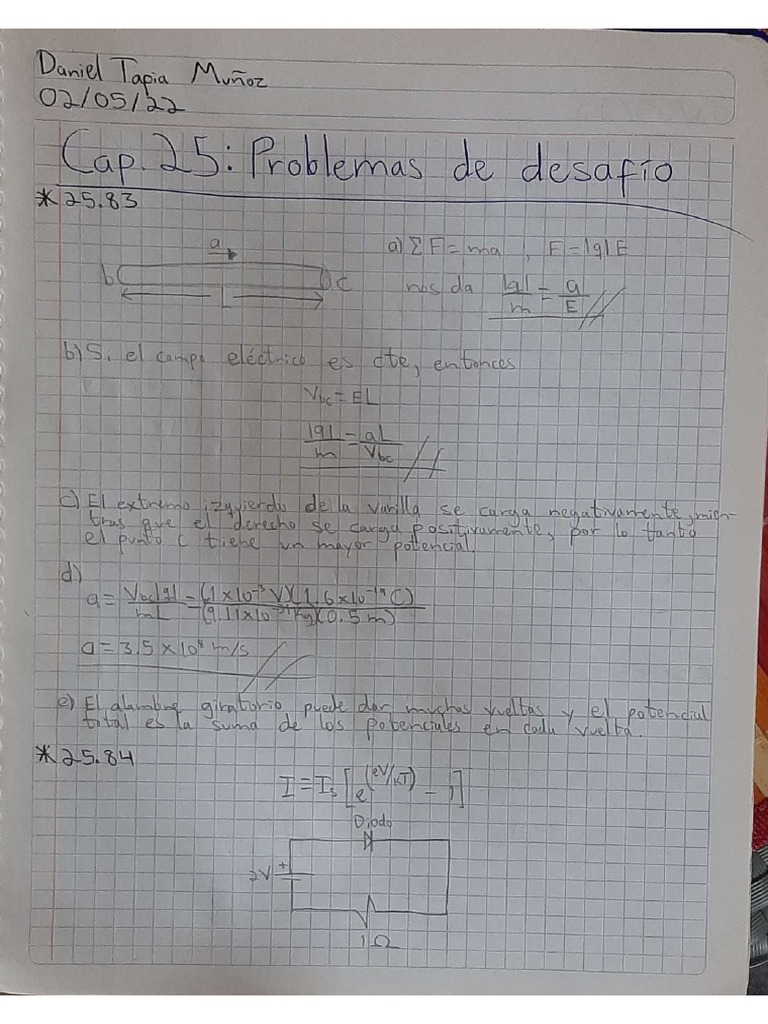 Daniel Tapia Muñoz
02/05/22
Cap. 25: Problemas de desafío
*25.83
a
b c
L
a) ΣF=ma , F=|q|E
nos da |q|/m = a/E
b) S. el campo eléctrico es cte, entonces
Vbc=EL
|q|/m = aL/Vbc
c) El extremo izquierdo de la varilla se carga negativamente, mien-
tras que el derecho se carga positivamente, por lo tanto
el punto c tiene un mayor potencial
d)
a = Vbc|q|/mL = (1×10⁻³ V)(1,6×10⁻¹⁹ C)/(9.11×10⁻³¹ kg)(0.5m)
a=3.5×10⁸ m/s
e) El alambre giratorio puede dar muchas vueltas y el potencial
total es la suma de los potenciales en cada vuelta.
*25.84
I=Is[e^(eV/kT) - 1]
Diodo
2V +
1Ω